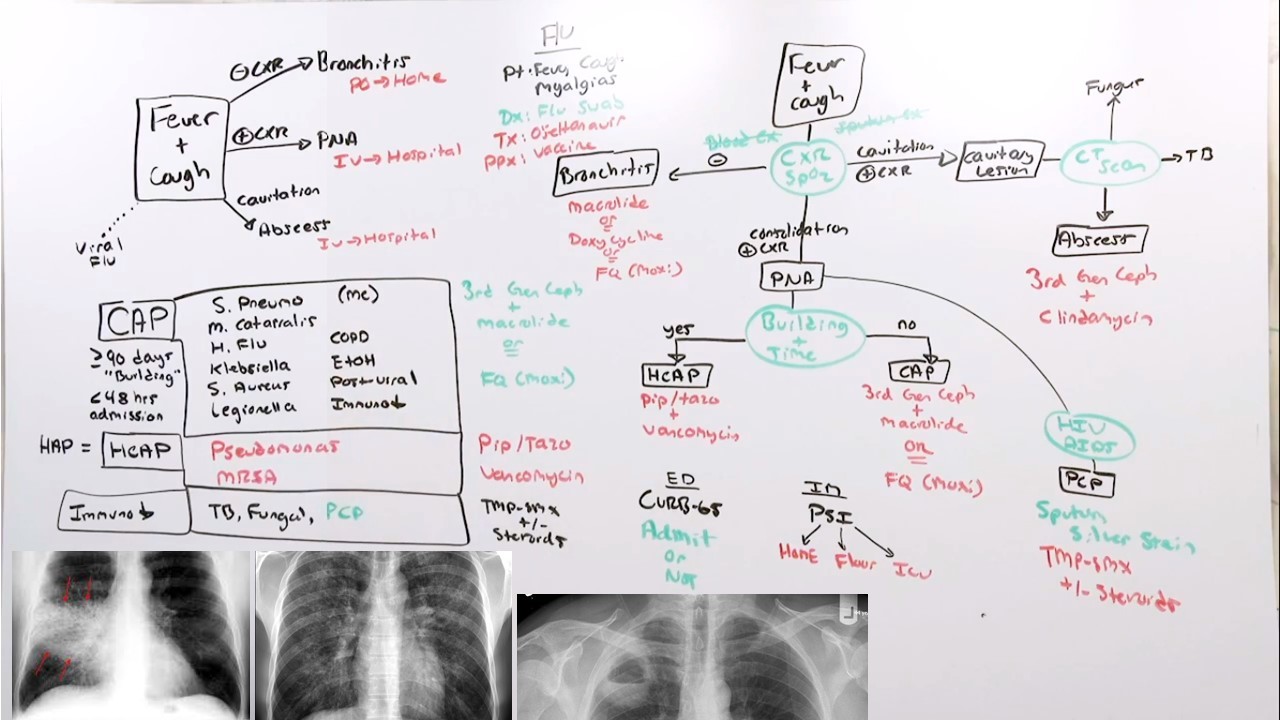 Fever
+
Cough
⊖CXR → Bronchitis
PO → Home
⊕CXR → PNA
IV → Hospital
cavitation
Abscess
IV → Hospital
Viral
Flu
Flu
Pt: Fever, Cough
Myalgias
Dx: Flu Swab
Tx: Oseltamavir
PPx: Vaccine
CAP
≥90 days
"Building"
<48 hrs
admission
S. Pneumo (mc)
M. Catarralis
H. Flu COPD
Klebsiella EtOH
S. Aureus Post-viral
Legionella Immuno↓
3rd Gen Ceph
+
macrolide
or
FQ (Moxi)
HAP = HCAP
Pseudomonas
MRSA
Pip/Tazo
Vancomycin
Immuno↓
TB, Fungal, PCP
TMP-SMX
+/-
Steroids
Fever
+
cough
Blood Cx
Sputum Cx
CXR
SpO2
⊖
Bronchitis
macrolide
or
Doxycycline
or
FQ (Moxi)
cavitation
⊕CXR
Cavitary
Lesion
CT
Scan
Fungus
→TB
Abscess
3rd Gen Ceph
+
Clindamycin
consolidation
⊕CXR
PNA
Building
+
Time
yes
no
HCAP
Pip/tazo
+
Vancomycin
CAP
3rd Gen Ceph
+
macrolide
OR
FQ (Moxi)
HIV
AIDS
PCP
Sputum
Silver Stain
TMP-SMX
+/- Steroids
ED
CURB-65
Admit
or
Not
IM
PSI
Home Floor ICU
L